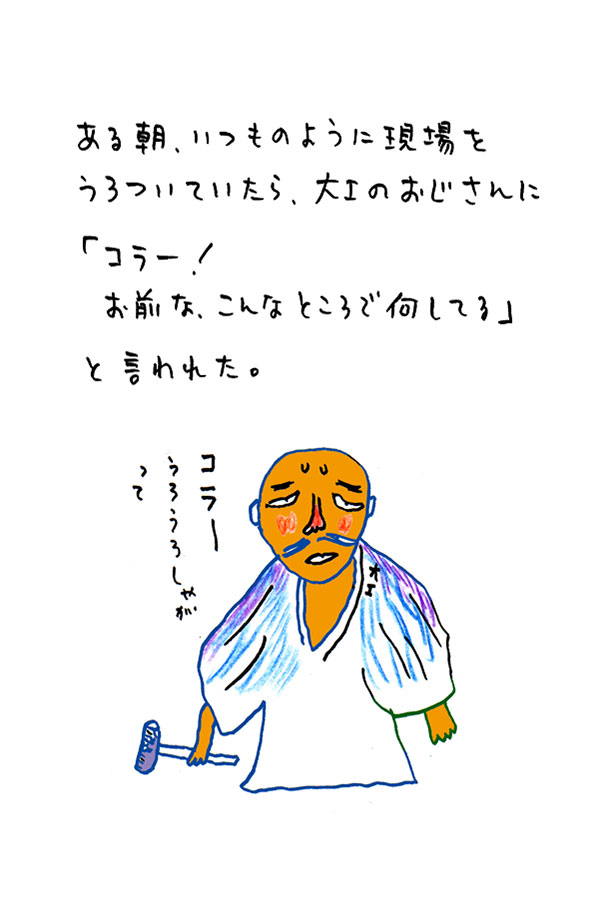 ある朝、いつものように現場を
うろついていたら、大工のおじさんに
「コラー！
お前な、こんなところで何してる」
と言われた。
コラー
うろうろしやが
って
大工